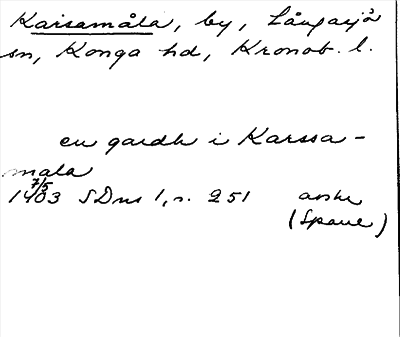 Kaisamåla, by, Långasjö
sn, Konga hd, Kronob. l.
en gardh i Karssa-
mala
7/5
1403 SDns 1, s. 251 avskr
(Spare)